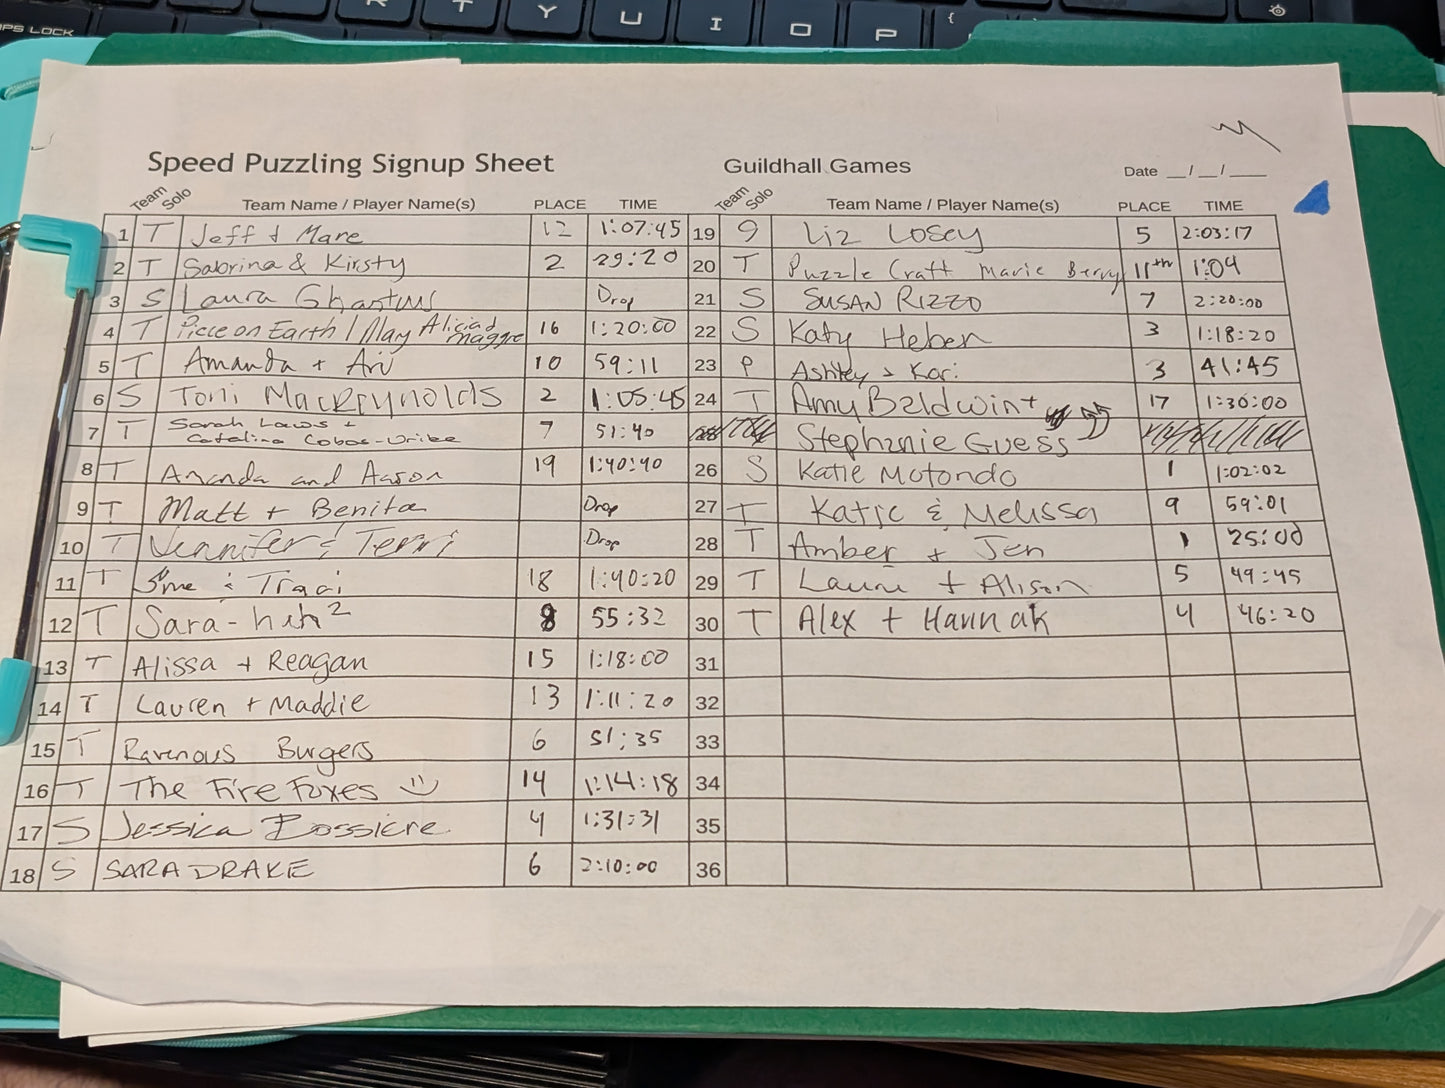 CAPS LOCK
R T Y U I O P {
Speed Puzzling Signup Sheet Guildhall Games Date __/__/____
Team Solo Team Name / Player Name(s) PLACE TIME Team Solo Team Name / Player Name(s) PLACE TIME
1 T Jeff + Mare 12 1:07:45
2 T Sabrina & Kirsty 2 29:20
3 S Laura Drop
4 T Piece on Earth / May Alicia & Maggie 16 1:20:00
5 T Amanda + Ari 10 59:11
6 S Toni MacReynolds 2 1:05:45
7 T Sarah Laws + Catalina Cobos-Uribe 7 51:40
8 T Amanda and Aaron 19 1:40:40
9 T Matt + Benita Drop
10 T Jennifer & Terri Drop
11 T & Traci 18 1:40:20
12 T Sara-hah² 8 55:32
13 T Alissa + Reagan 15 1:18:00
14 T Lauren + Maddie 13 1:11:20
15 T Ravenous Burgers 6 51:35
16 T The Fire Foxes 14 1:14:18
17 S Jessica Bossiere 4 1:31:31
18 S SARA DRAKE 6 2:10:00
19 Liz Losey 5 2:03:17
20 T Puzzle Craft Marie Berry 11th 1:04
21 S SUSAN RIZZO 7 2:20:00
22 S Katy Heben 3 1:18:20
23 P Ashley & Kori 3 41:45
24 T Amy Baldwin + 17 1:30:00
25 Stephanie Guess
26 S Katie Motondo 1 1:02:02
27 T Katie & Melissa 9 59:01
28 T Amber + Jen 1 25:00
29 T Laurie + Alison 5 49:45
30 T Alex + Hannah 4 46:20
31
32
33
34
35
36